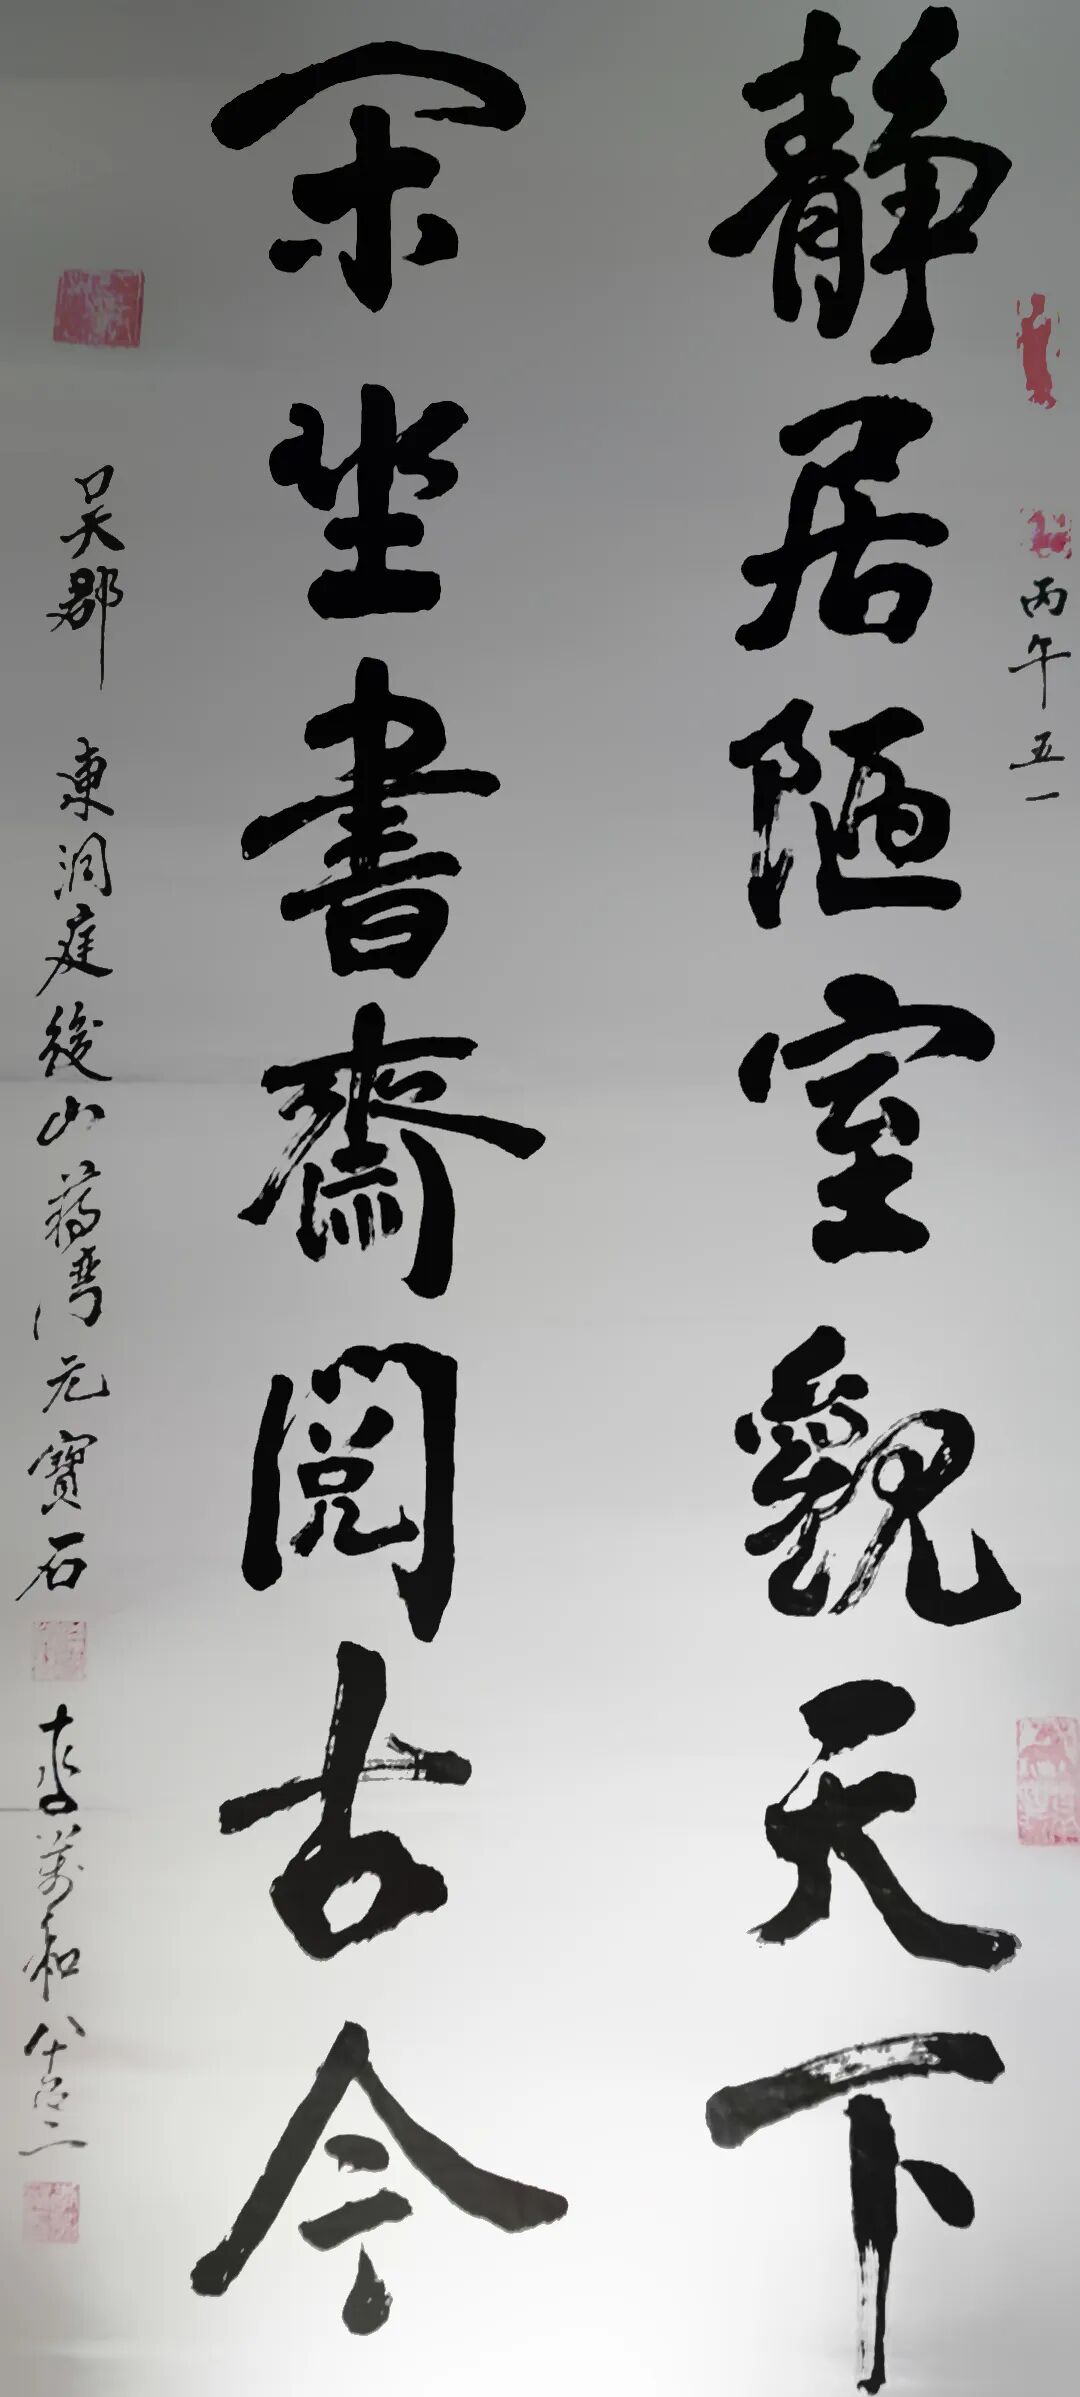 丙午五一
静居陋室觀天下
余坐書齋閱古今
吴郡 東洞庭後山蒋湾元寶石
李萬和八十二